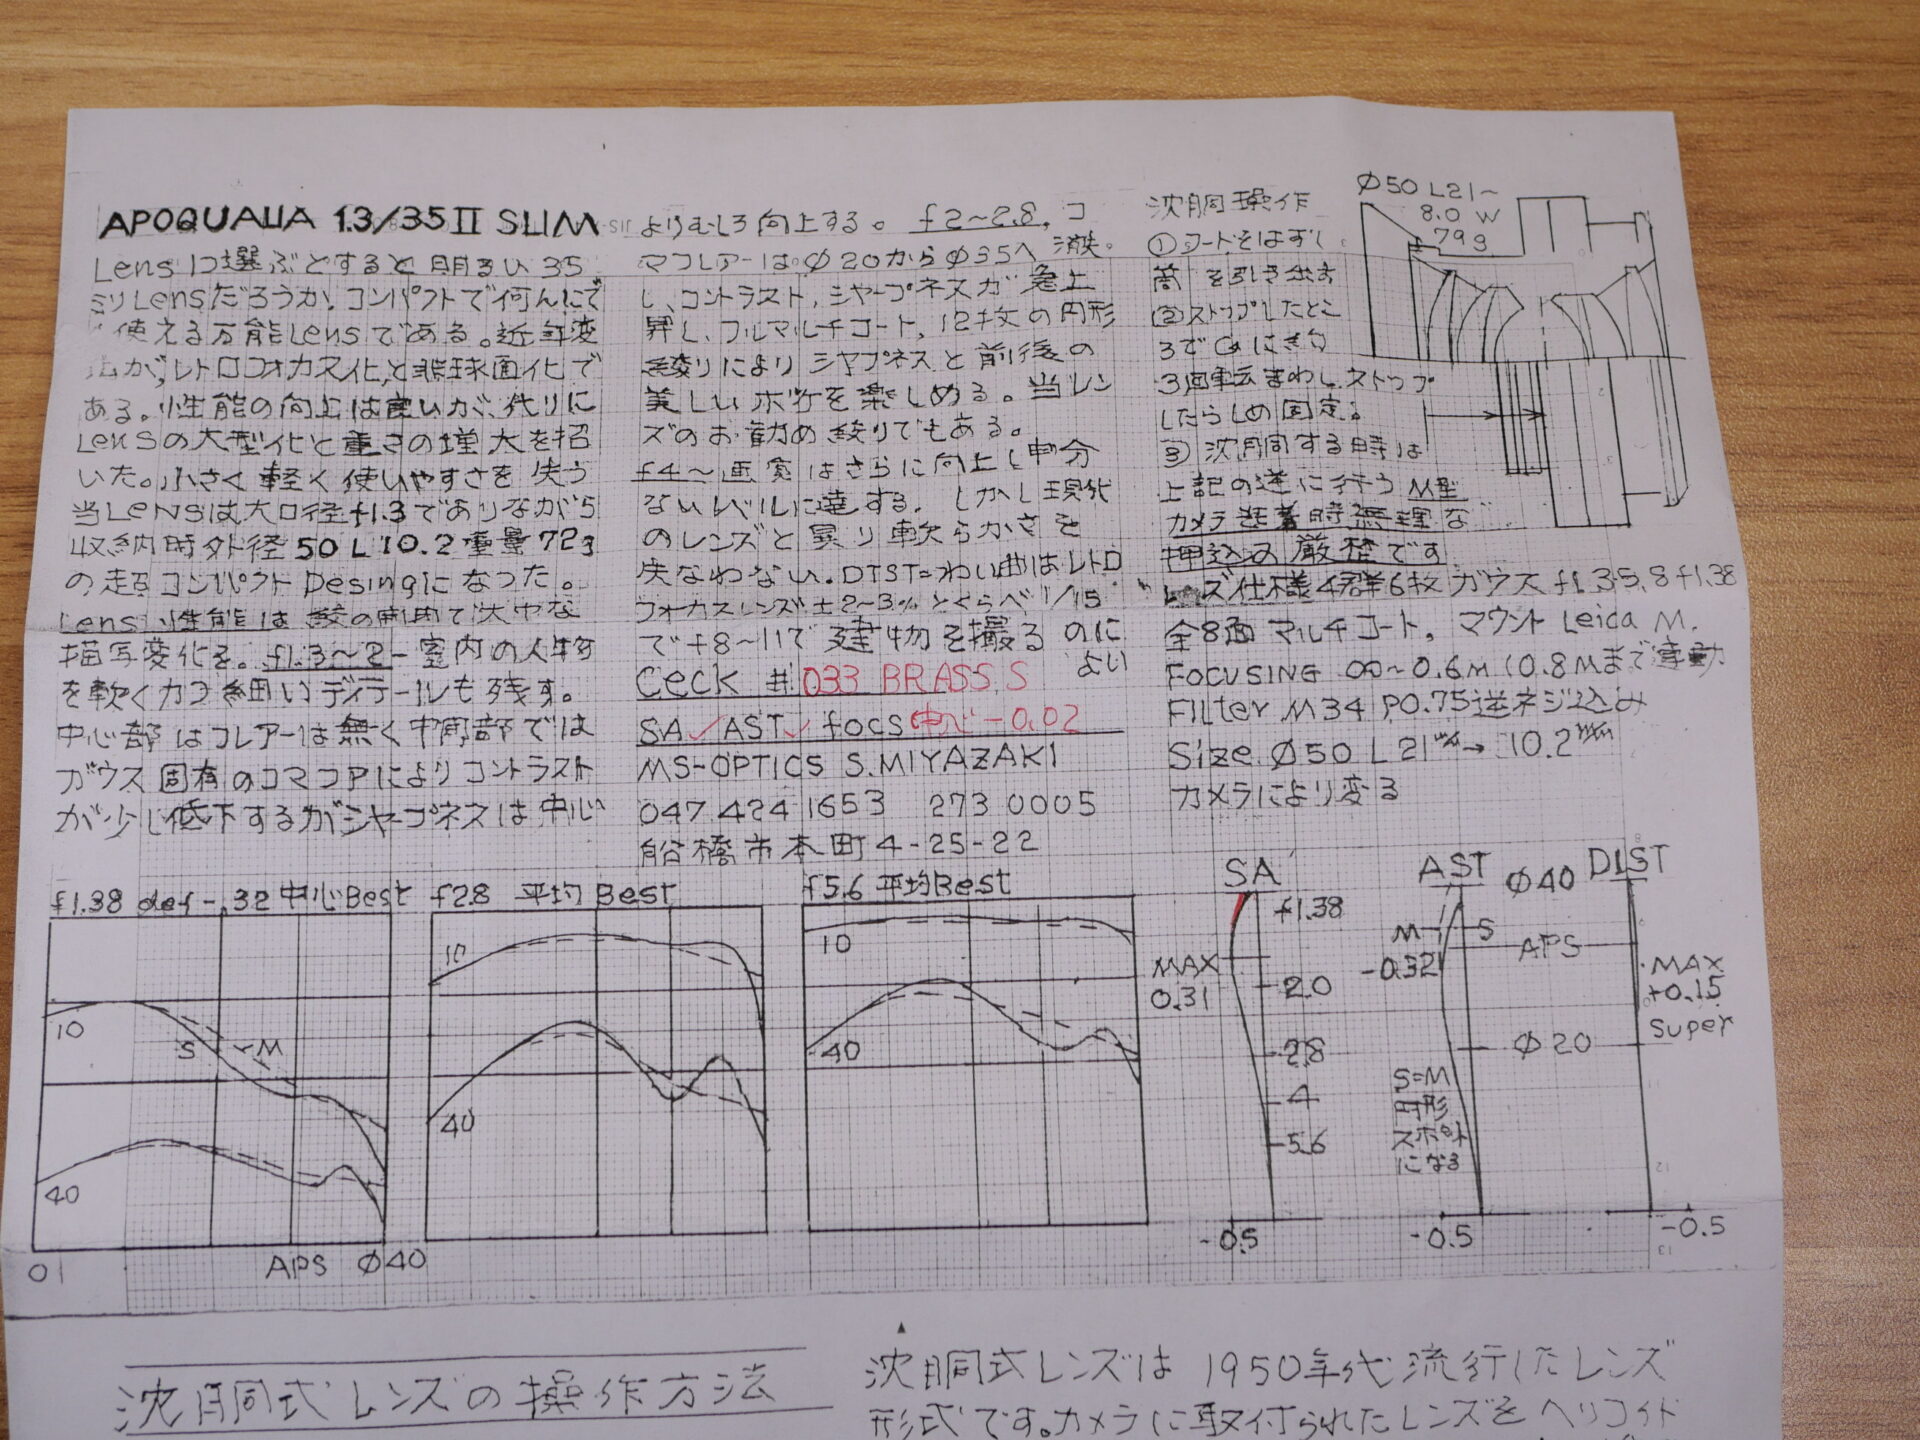 APOQUALIA 1.3/35 II SLIM
Lens 1つ選ぶとすると明るい35
ミリLensだろうか.コンパクトで何んにで
使える万能Lensである。近年変
が,レトロフォカス化と非球面化で
ある。性能の向上は良いが、代りに
Lensの大型化と重さの増大を招
いた。小さく軽く使いやすさを失う
当LENSは大口径f1.3でありながら
収納時外径50 L 10.2重量72g
の超コンパクトDesingになった。
Lens性能は
描写変化を。f1.3~2- 室内の人物
を軟くカつ細いディテールも残す。
中心部はフレアーは無く中間部では
ガウス固有のコマコアによりコントラスト
が少し低下するがシャープネスは中心
よりむしろ向上する。 f2~2.8, コ
マフレアーはφ20からφ35へ 激
し、コントラスト,シャープネスが急上
昇し、フルマルチコート,12枚の円形
絞りによりシャプネスと前後の
美しいボケを楽しめる。当レン
ズのお勧め絞りでもある。
f4~画質はさらに向上し申分
ないレベルに達する. しかし現代
のレンズと異り軟らかさを
失なわない.DIST=わい曲はレトロ
フォカスレンズ±2~3%とくらべ1/15
でf8~11で建物を撮るのに
よい
Ceck # 033 BRASS.S
SA✓AST✓ focs中心-0.02
MS-OPTICS S.MIYAZAKI
047 424 1653 273 0005
船橋市本町4-25-22
沈胴操作
①フードをはずし
筒を引き出す
②ストップしたとこ
ろで
3回転まわしストップ
したらしめ固定。
③沈胴する時は
上記の逆に行う M型
カメラ装着時無理な
押込み厳禁です
レンズ仕様4群6枚ガウス f1.35.8 f1.38
全8面マルチコート, マウント Leica M.
FOCUSING ∞~0.6m(0.8Mまで連動
Filter M34 P0.75逆ネジ込み
Size φ50 L21→10.2
カメラにより変る
φ50 L21~
8.0 W
79g
f1.38 def-.32 中心Best
10
S
M
40
0
APS φ40
f2.8 平均Best
10
40
f5.6 平均Best
10
40
SA
f1.38
MAX
0.31
2.0
2.8
4
5.6
-0.5
AST
M
S
-0.32
S=M
円形
スポット
になる
-0.5
φ40
APS
φ20
DIST
MAX
+0.15
super
-0.5
沈胴式レンズの操作方法
沈胴式レンズは1950年代流行したレンズ
形式です。カメラに取付られたレンズをヘリコイド